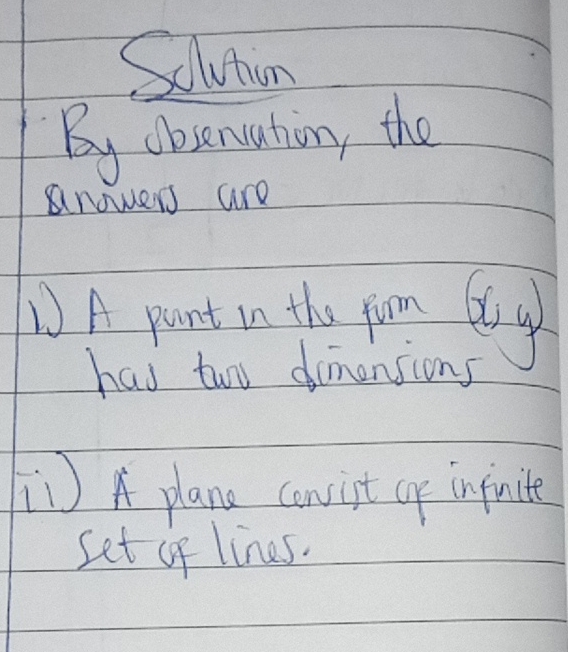 Solution
By observation, the
answers are
i) A point in the form (x, y)
has two dimensions
ii) A plane consist of infinite
set of lines.